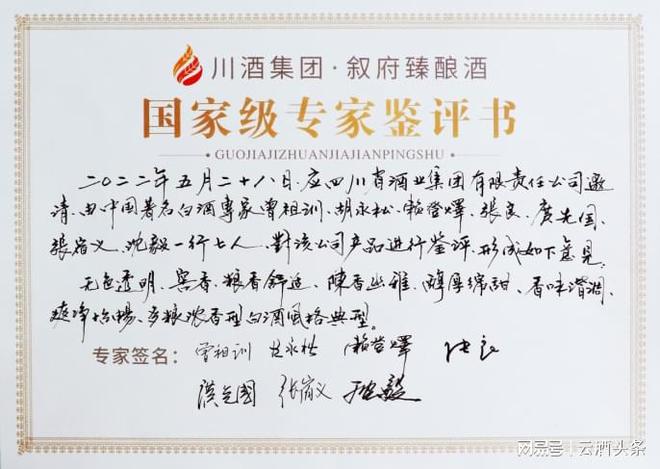 川酒集团·叙府臻酿酒
国家级专家鉴评书
GUOJIAJIZHUANJIAJIANPINGSHU
二〇二二年五月二十八日,应四川省酒业集团有限责任公司邀
请,由中国著名白酒专家曾祖训、胡永松、赖登燡、张良、廣先国、
张宿义、沈毅一行七人,對该公司产品进行鉴评,形成如下意见:
无色透明、窖香、粮香舒适、陳香幽雅、醇厚绵甜、香味谐调、
爽净怡畅、多粮浓香型白酒風格典型。
专家签名: 曾祖训 胡永松 赖登燡 张良
张宿义 沈毅
搜狐号@云酒头条